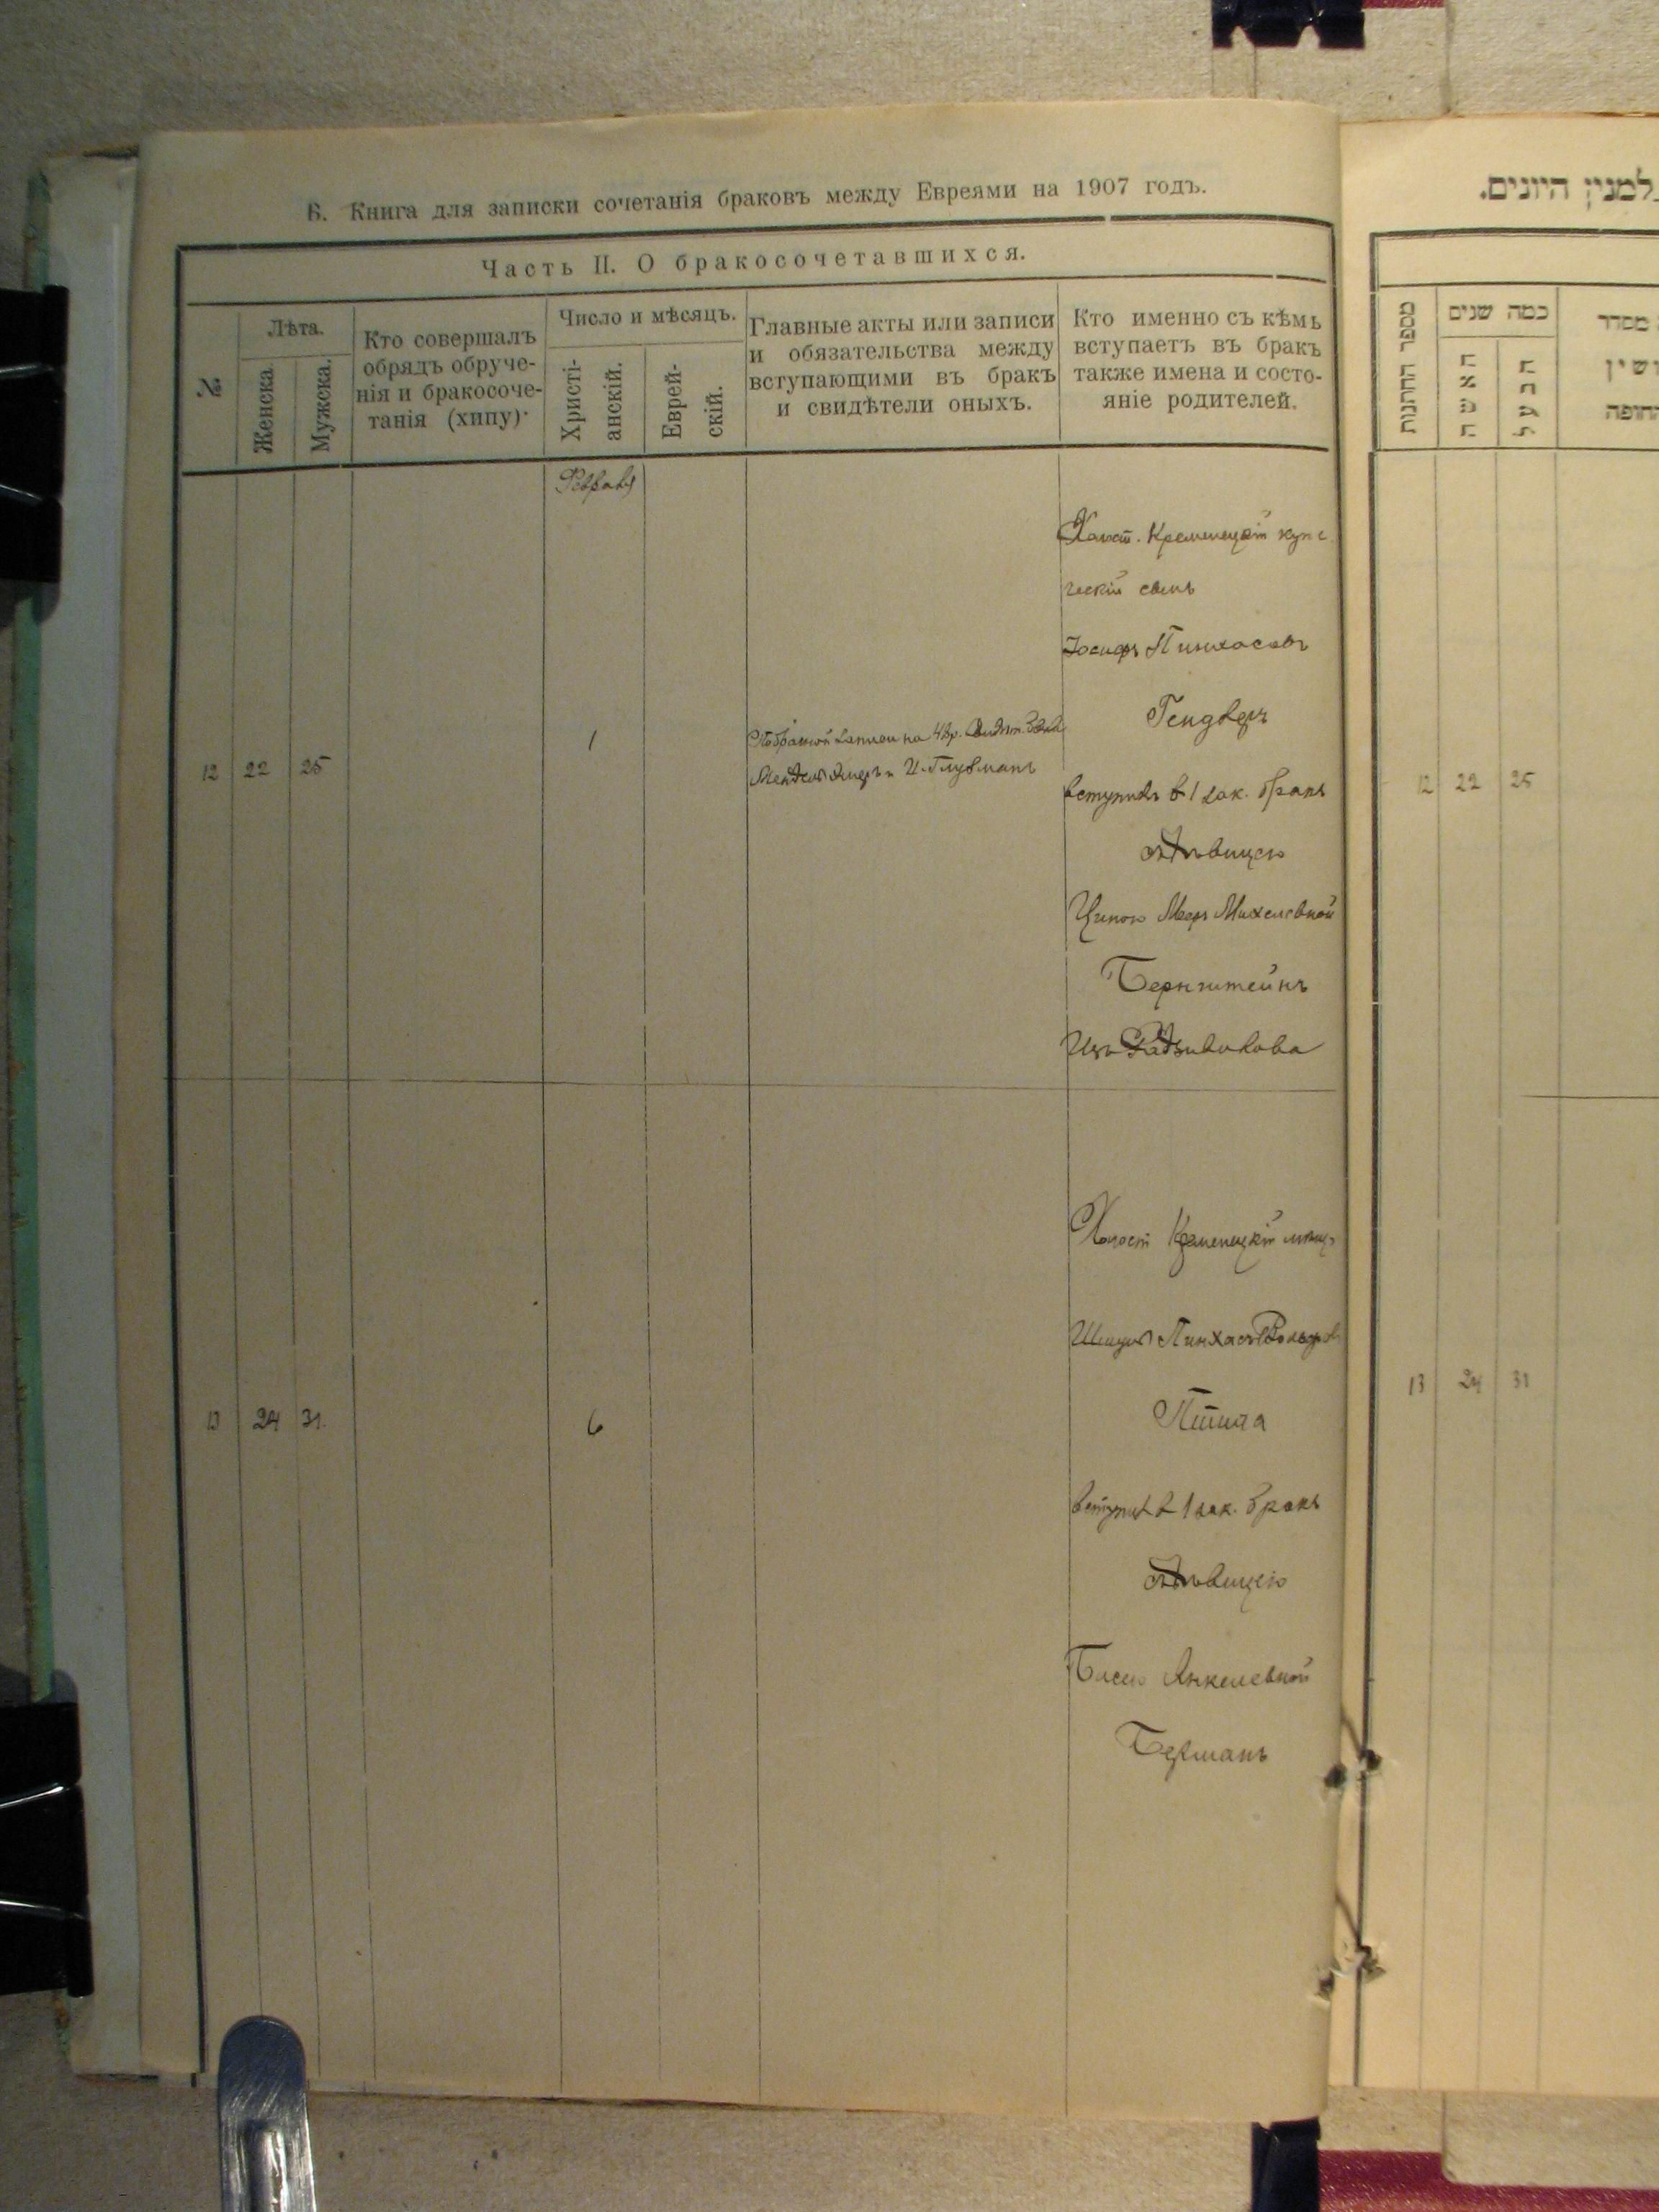 6. Книга для записки сочетанія браковъ между Евреями на 1907 годъ.
Часть II. О бракосочетавшихся.
№
Лѣта.
Женска.
Мужска.
Кто совершалъ
обрядъ обруче-
нія и бракосоче-
танія (хипу)
Число и мѣсяцъ.
Христі-
анскій.
Еврей-
скій.
Главные акты или записи
и обязательства между
вступающими въ бракъ
и свидѣтели оныхъ.
Кто именно съ кѣмъ
вступаетъ въ бракъ
также имена и состо-
яніе родителей.
12 22 25
1
Менделъ и И. Глузманъ
Холост. Кременецкій купе
ческій сынъ
Іосифъ Пинхасовъ
Гендлеръ
вступилъ в 1 зак. бракъ
съ дѣвицею
Ципою Меер Михелевной
Бернштейнъ
Изъ Радзивилова
13 24 31
6
Холост Кременецкій мѣщ
Пинхасъ
Птица
вступил в 1 зак. бракъ
съ дѣвицею
Басею Янкелевной
Берманъ
למנין היונים.
מספר החתונות
כמה שנים
האשה
הבעל
מסדר
12 22 25
13 24 31